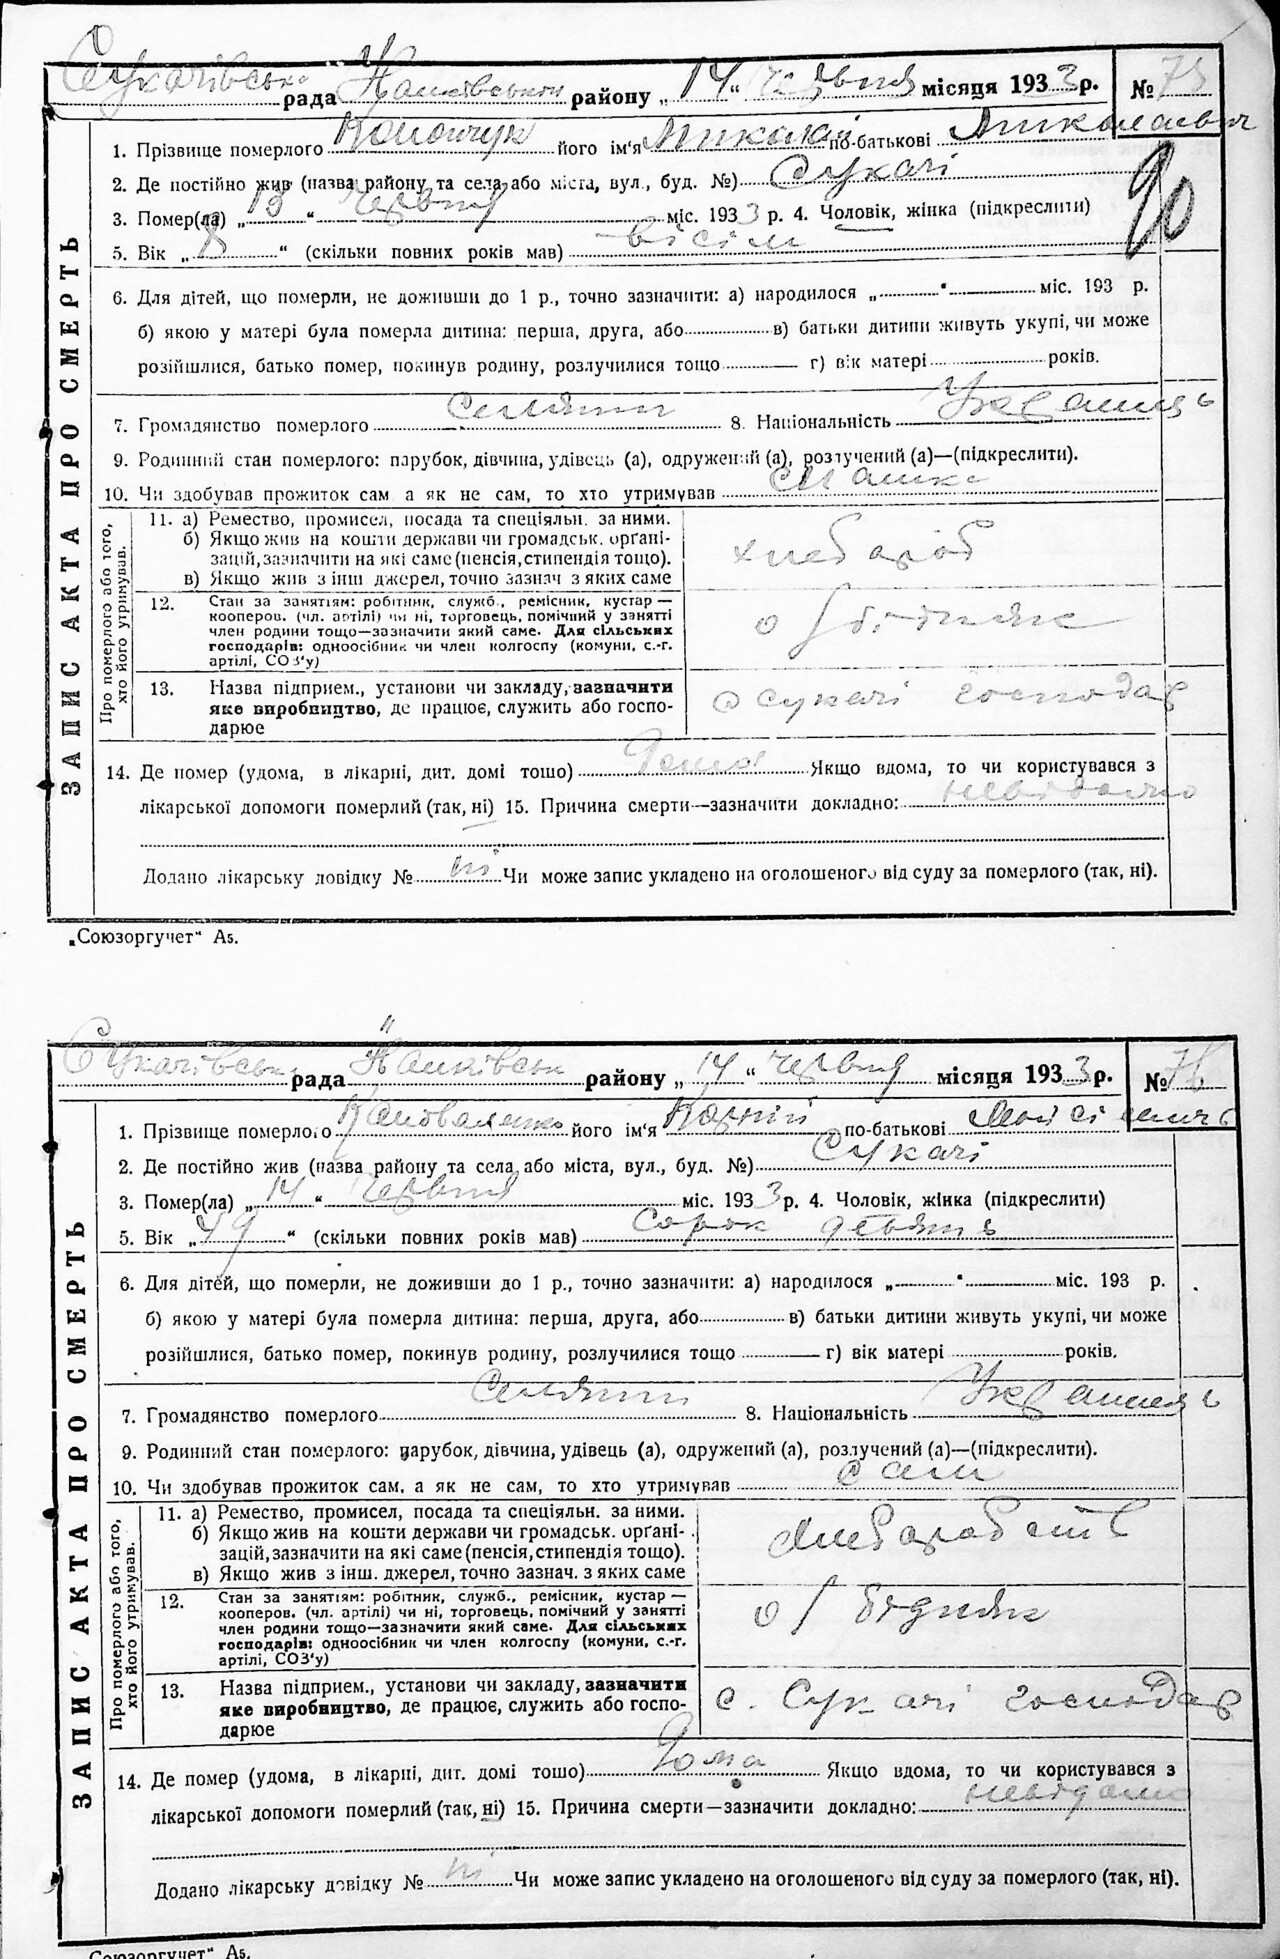 Сукачівська рада Іванківськом району „ 14 “ Червня місяця 1933 р. № 75
1. Прізвище померлого його ім'я Миколай по-батькові Миколаевич
2. Де постійно жив (назва району та села або міста, вул., буд. №) Сукачі
90
3. Помер(ла) „ 13 “ Червня міс. 1933 р. 4. Чоловік, жінка (підкреслити)
5. Вік „ 8 “ (скільки повних років мав) вісім
6. Для дітей, що померли, не доживши до 1 р., точно зазначити: а) народилося „ “ міс. 193 р.
б) якою у матері була померла дитина: перша, друга, або в) батьки дитини живуть укупі, чи може
розійшлися, батько помер, покинув родину, розлучилися тощо г) вік матері років.
7. Громадянство померлого Селянин 8. Національність Украинець
9. Родинний стан померлого: парубок, дівчина, удівець (а), одружений (а), розлучений (а)—(підкреслити).
10. Чи здобував прожиток сам а як не сам, то хто утримував
Про померлого або того, хто його утримував.
11. а) Ремество, промисел, посада та спеціяльн. за ними.
б) Якщо жив на кошти держави чи громадськ. орґані-
зацій, зазначити на які саме (пенсія, стипендія тощо).
в) Якщо жив з інш джерел, точно зазнач з яких саме
хлебароб
12. Стан за занятіям: робітник, служб., ремісник, кустар —
кооперов. (чл. артілі) чи ні, торговець, помічний у занятті
член родини тощо—зазначити який саме. Для сільських
господарів: одноосібник чи член колгоспу (комуни, с.-г.
артілі, СОЗ'у)
о/бідняк
13. Назва підприєм., установи чи закладу, зазначити
яке виробництво, де працює, служить або госпо-
дарює
с Сукачі господар
14. Де помер (удома, в лікарні, дит. домі тощо) Дома Якщо вдома, то чи користувався з
лікарської допомоги померлий (так, ні) 15. Причина смерти—зазначити докладно: невідомо
Додано лікарську довідку № ні Чи може запис укладено на оголошеного від суду за померлого (так, ні).
ЗАПИС АКТА ПРО СМЕРТЬ
„Союзоргучет“ А5.
Сукачівська рада Іванківськ району „ 14 “ Червня місяця 1933 р. № 76
1. Прізвище померлого Коноваленко його ім'я Корній по-батькові
2. Де постійно жив (назва району та села або міста, вул., буд. №) Сукачі
3. Помер(ла) „ 14 “ Червня міс. 1933 р. 4. Чоловік, жінка (підкреслити)
5. Вік „ 49 “ (скільки повних років мав) Сорок девянь
6. Для дітей, що померли, не доживши до 1 р., точно зазначити: а) народилося „ “ міс. 193 р.
б) якою у матері була померла дитина: перша, друга, або в) батьки дитини живуть укупі, чи може
розійшлися, батько помер, покинув родину, розлучилися тощо г) вік матері років.
7. Громадянство померлого Селянин 8. Національність Украинець
9. Родинний стан померлого: парубок, дівчина, удівець (а), одружений (а), розлучений (а)—(підкреслити).
10. Чи здобував прожиток сам, а як не сам, то хто утримував сам
Про померлого або того, хто його утримував.
11. а) Ремество, промисел, посада та спеціяльн. за ними.
б) Якщо жив на кошти держави чи громадськ. орґані-
зацій, зазначити на які саме (пенсія, стипендія тощо).
в) Якщо жив з інш. джерел, точно зазнач. з яких саме
12. Стан за занятіям: робітник, служб., ремісник, кустар —
кооперов. (чл. артілі) чи ні, торговець, помічний у занятті
член родини тощо—зазначити який саме. Для сільських
господарів: одноосібник чи член колгоспу (комуни, с.-г.
артілі, СОЗ'у)
о/бідняк
13. Назва підприєм., установи чи закладу, зазначити
яке виробництво, де працює, служить або госпо-
дарює
с. Сукачі господар
14. Де помер (удома, в лікарні, дит. домі тошо) Дома Якщо вдома, то чи користувався з
лікарської допомоги померлий (так, ні) 15. Причина смерти—зазначити докладно: невідомо
Додано лікарську довідку № ні Чи може запис укладено на оголошеного від суду за померлого (так, ні).
ЗАПИС АКТА ПРО СМЕРТЬ
„Союзоргучет“ А5.